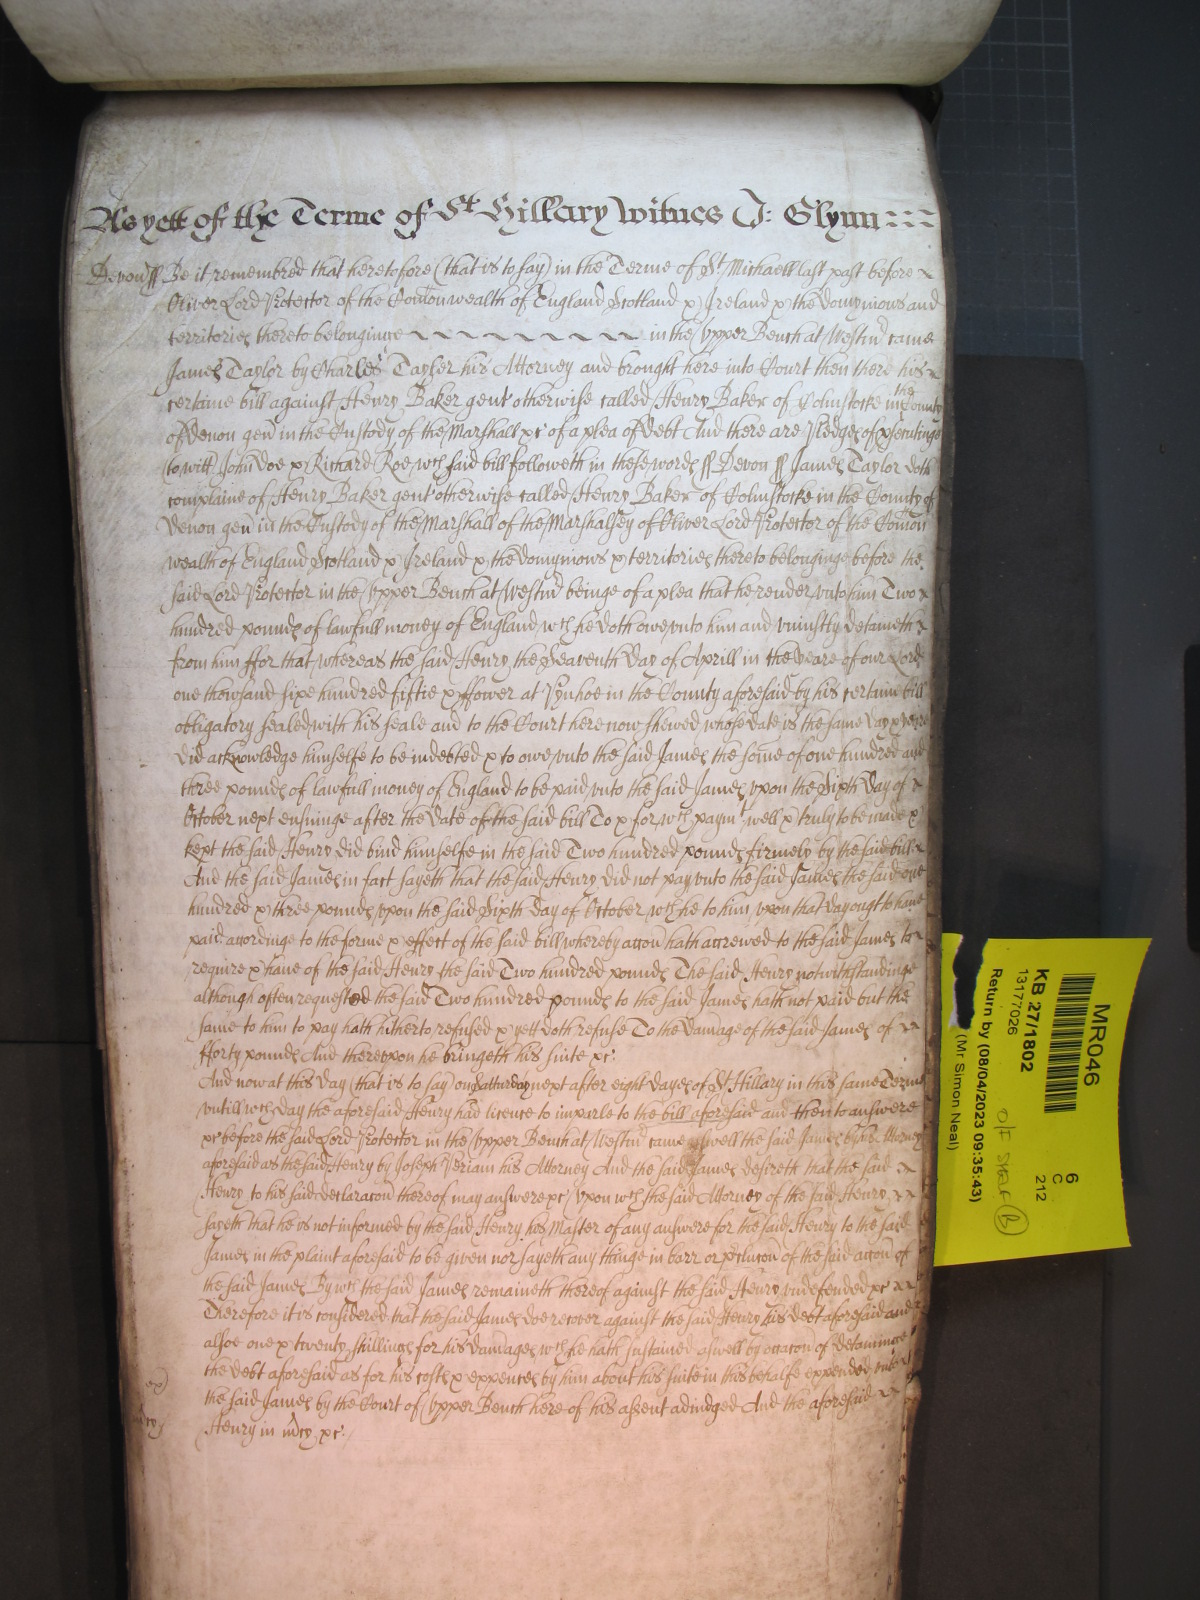 As yett of the Terme of St Hillary Witnes J: Glynn
Devon ss Be it remembred that heretofore (that is to say) in the Terme of St Michaell last past before
Oliver Lord Protector of the Comonwealth of England Scotland & Ireland & the domynions and
territories thereto belonginge in the Vpper Bench at Westm came
James Taylor by Charles Tayler his Attorney and brought here into Court then there his
certaine bill against Henry Baker gent otherwise called Henry Baker of Columstocke in the County
of Devon gen in the Custody of the Marshall &c of a plea of debt And there are pledges of p'secutinge
(to witt) John Doe & Richard Roe wch said bill followeth in these words ss Devon ss James Taylor doth
complaine of Henry Baker gent otherwise called Henry Baker of Columstocke in the County of
Devon gen in the Custody of the Marshall of the Marshalsey of Oliver Lord Protector of the Comon
wealth of England Scotland & Ireland & the domynions & territories thereto belonginge before the
said Lord Protector in the Vpper Bench at Westm beinge of a plea that he render vnto him Two
hundred pounds of lawfull money of England wch he doth owe vnto him and vniustly detaineth
from him ffor that whereas the said Henry the Seaventh day of Aprill in the yeare of our Lord
one thowsand sixe hundred fiftie & ffower at Pynhoe in the County aforesaid by his certaine bill
obligatory sealed with his seale and to the Court here now shewed whose date is the same day & yeare
did acknowledge himselfe to be indebted & to owe vnto the said James the some of one hundred and
three pounds of lawfull money of England to be paid vnto the said James vpon the Sixth day of
October next ensuinge after the date of the said bill To & for wch paymt well & truly to be made &
kept the said Henry did bind himselfe in the said Two hundred pounds firmely by the said bill
And the said James in fact sayeth that the said Henry did not pay vnto the said James the said one
hundred & three pounds vpon the said Sixth day of October wch he to him vpon that day ought to have
paid accordinge to the forme & effect of the said bill whereby accon hath accrewed to the said James to
require & have of the said Henry the said Two hundred pounds The said Henry notwithstandinge
although often requested the said Two hundred pounds to the said James hath not paid but the
same to him to pay hath hitherto refused & yett doth refuse To the damage of the said James of
fforty pounds And therevpon he bringeth his suite &c.
And now at this day (that is to say) on Satturday next after eight dayes of St Hillary in this same Terme
vntill wch day the aforesaid Henry had licence to imparle to the bill aforesaid and then to answere
&c before the said Lord Protector in the Vpper Bench at Westm came aswell the said James by his Attorney
aforesaid as the said Henry by Joseph Periam his Attorney And the said James desireth that the said
Henry to his said declaracon thereof may answere &c Vpon wch the said Attorney of the said Henry
sayeth that he is not informed by the said Henry his Master of any answere for the said Henry to the said
James in the plaint aforesaid to be given nor sayeth any thinge in barr or p'clucon of the said accon of
the said James By wch the said James remaineth thereof against the said Henry vndefended &c
Therefore it is considered that the said James doe recover against the said Henry his debt aforesaid and
alsoe one & twenty shillings for his damages wch he hath sustained aswell by occacon of detaininge
the debt aforesaid as for his costs & expences by him about his suite in this behalfe expended vnto
the said James by the Court of Vpper Bench here of his assent adiudged And the aforesaid
Henry in mcy &c.
mcy
MR046
KB 27/1802
13177026
Return by (08/04/2023 09:35:43)
(Mr Simon Neal)
6
C
212
O/F SHELF B